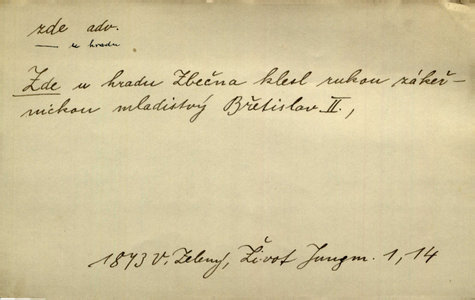 zde adv.
— u hradu
Zde u hradu Zbečna klesl rukou zákeř-
nickou mladistvý Břetislav II.,
1873 V. Zelený, Život Jungm. 1, 14